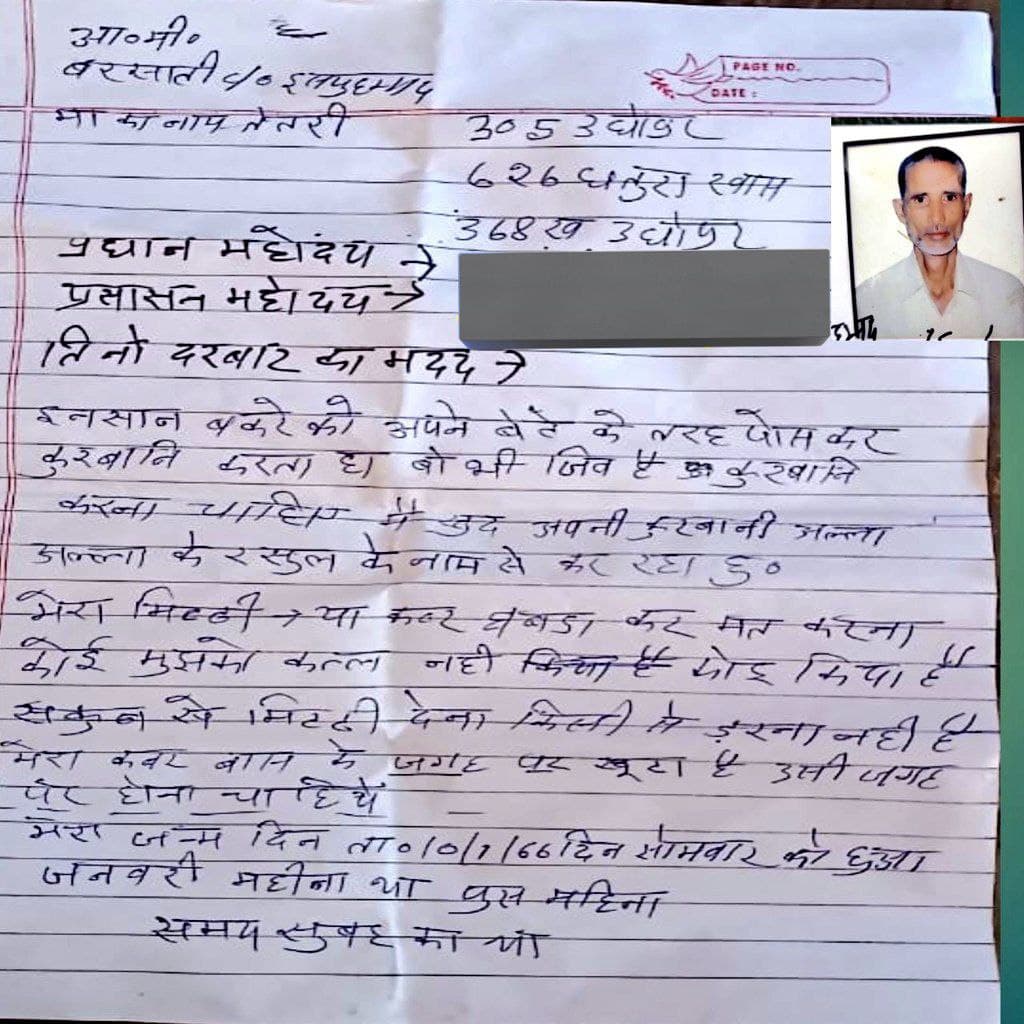 आ०मी०
बरसाती c/o इसमुहम्मद
PAGE NO.
DATE :
मा का नाम तेतरी
305 उधोपुर
626 धतुरा खास
368 ख उधोपुर
प्रधान महोदय →
प्रसासन महोदय →
तिनो दरबार का मदद →
इनसान बकरे को अपने बेटे के तरह पोस कर
कुरबानि करता हा वो भी जिव है कुरबानि
करना चाहिए मै खुद अपनी कुरबानी अल्ला
अल्ला के रसुल के नाम से कर रहा हु०
मेरा मिटटी → या कबर घबडा कर मत करना
कोई मुझको कत्ल नही किया है कोइ किया है
सकुन से मिटटी देना किसी से डरना नही है
मेरा कबर बास के जगह पर खूटा है उसी जगह
पर होना चाहिये
मेरा जन्म दिन ता० 10/1/66 दिन सोमवार को हुआ
जनवरी महीना था पुस महिना
समय सुबह का था